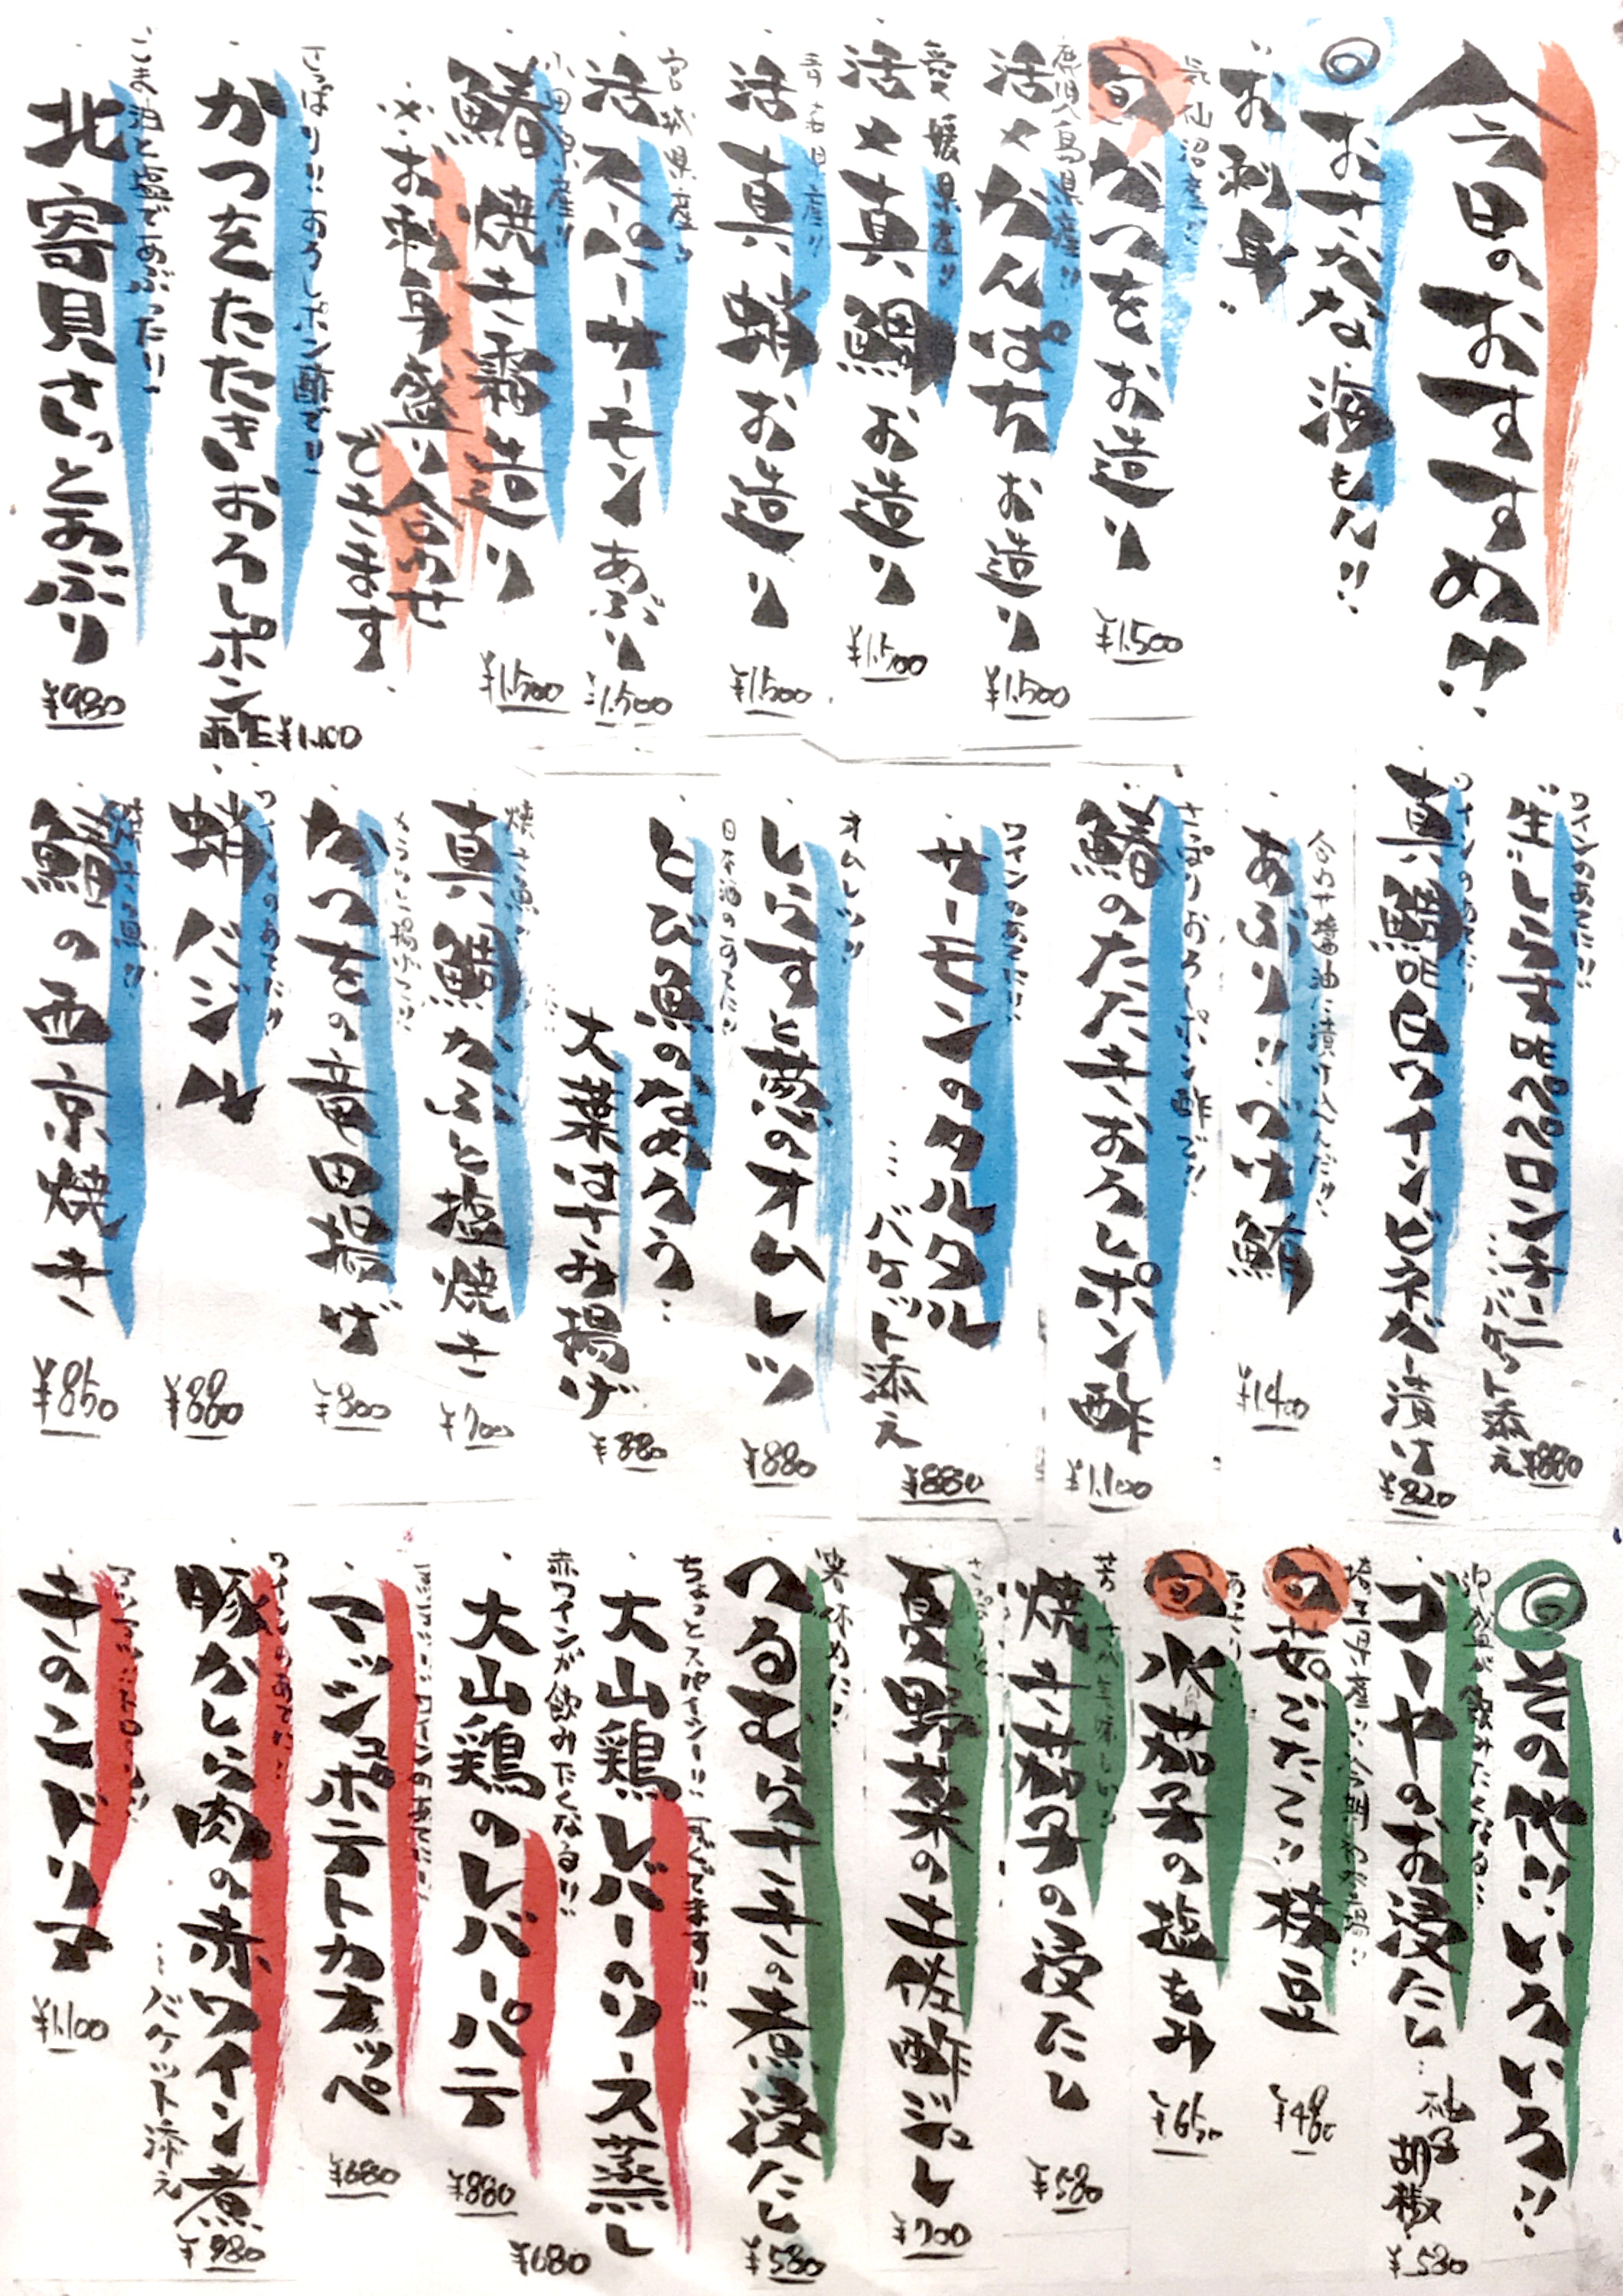 今日のおすすめ!!
◎おさかな海もん!!
お刺身
気仙沼産!!
旬かつをお造り
¥1,500
鹿児島県産!!
活〆かんぱちお造り
¥1,500
愛媛県産!!
活〆真鯛お造り
¥1,500
青森県産!!
活真蛸お造り
¥1,500
宮城県産!!
活スーパーサーモンあぶり
¥1,500
小田原産!!
鰆焼き霜造り
¥1,500
※お刺身盛り合わせ
できます
さっぱり!!おろしポン酢で!!
かつをたたきおろしポン酢
¥1,100
ごま油と塩であぶったり!!
北寄貝さっとあぶり
¥980
ワインのあてに!!
生しらす昨ペペロンチーニ
…バケット添え
¥880
ワインのあてに!!
真鯛昨白ワインビネガー漬け
¥820
合わせ醤油に漬け込んだ!!
あぶり!!づけ鮪
¥1,400
さっぱりおろしポン酢で!!
鰆のたたきおろしポン酢
¥1,100
ワインのあてに!!
サーモンのタルタル
…バケット添え
¥880
オムレツ!!
しらすと葱のオムレツ
¥880
日本酒のあてに!!
とび魚のなめろう…
大葉はさみ揚げ
¥880
焼き魚!!
真鯛かぶと塩焼き
¥700
かつをの竜田揚げ
¥800
ワインのあてに!!
蛸バジル
¥880
焼き魚!!
鰆の西京焼き
¥850
◎その他!!いろいろ!!
泡盛が飲みたくなる!!
ゴーヤのお浸し…柚子胡椒
¥580
埼玉県産!!
旬茹でたて!!枝豆
¥480
旬水茄子の塩もみ
¥650
焼き茄子の浸たし
¥580
夏野菜の土佐酢ジュレ
¥700
箸休めに!!
つるむらさきの煮浸たし
¥580
ちょっとスパイシー!!
大山鶏レバーのソース蒸し
¥680
赤ワインが飲みたくなる!!
大山鶏のレバーパテ
¥880
マッシュポテトカナッペ
¥680
ワインのあてに!!
豚かしら肉の赤ワイン煮
…バケット添え
¥980
きのこドリア
¥1,100